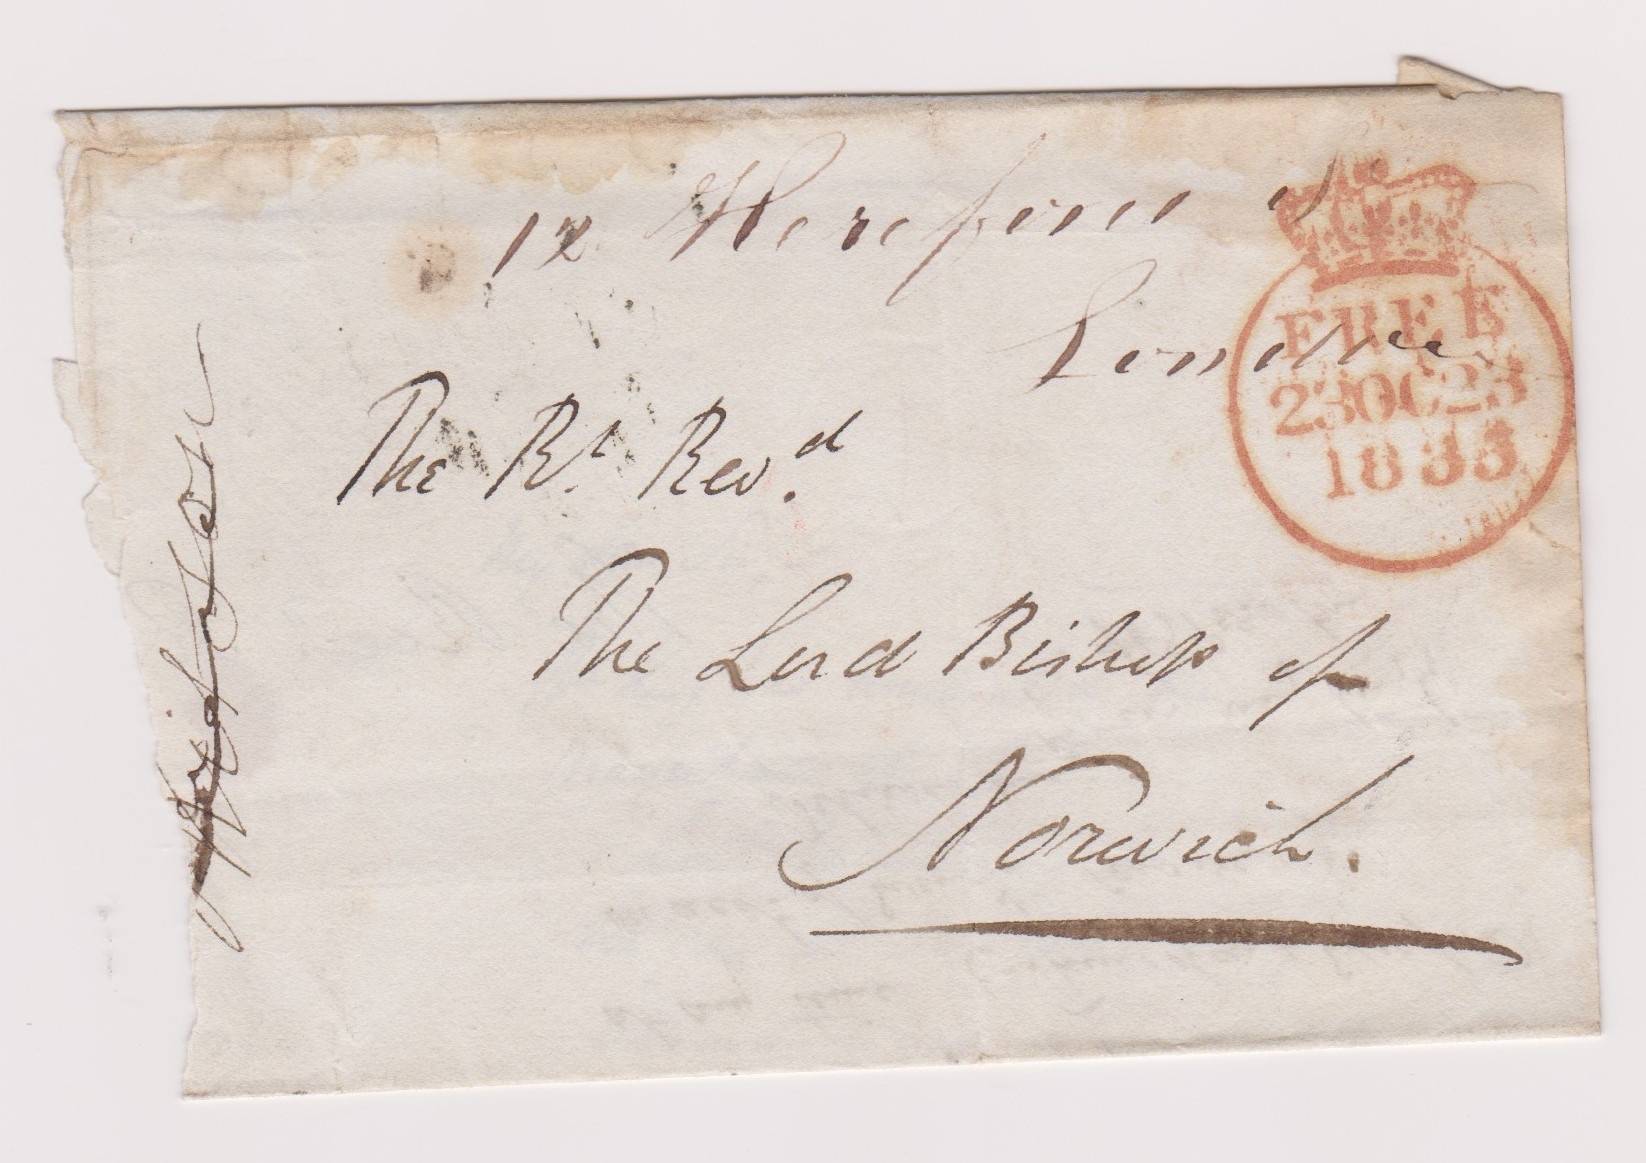 12 Hereford St
London
FREE
23OC23
1835
The Rt. Revd.
The Lord Bishop of
Norwich.